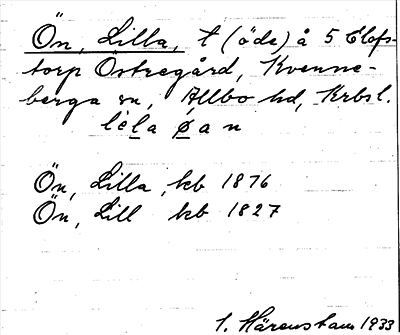 Ön, Lilla, t (öde) å 5 Elofs-
torp Östregård, Kvenne-
berga sn, Allbo hd, Krbsl.
lèla øan
Ön, Lilla, kb 1876
Ön, Lill kb 1827
1933